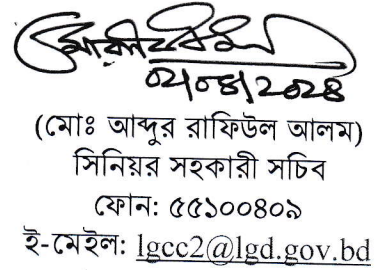 (মোঃ আব্দুর রাফিউল আলম)
সিনিয়র সহকারী সচিব
ফোন: ৫৫১০০৪০৯
ই-মেইল: lgcc2@lgd.gov.bd